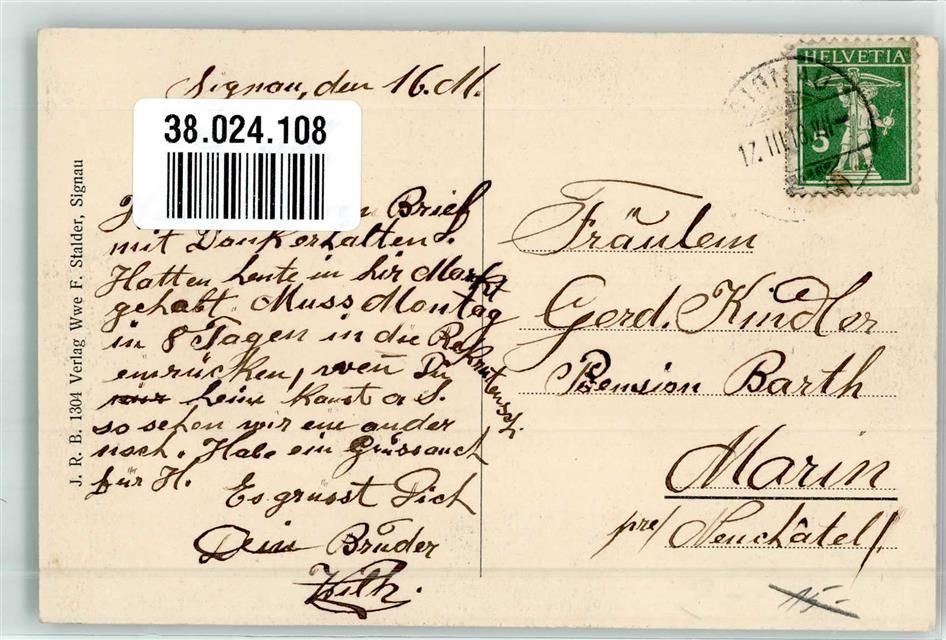 Signau, den 16. M.
38.024.108
Brief
mit Dank erhalten.
Hatten heute in hir Markt
gehabt. Muss Montag
in 8 Tagen in die Rekrutensch.
einrücken, wen Du
heim kanst a S.
so sehen wir ein ander
noch. Habe ein Grüss auch
für H.
Es grüsst Dich
Dein Brüder
Wilh.
J. R. B. 1304 Verlag Wwe F. Stalder, Signau
HELVETIA
5
SIGNAU
17. III.
Fräulein
Gerd. Kindler
Pension Barth
Marin
pre/ Neuchâtel/.
15.-